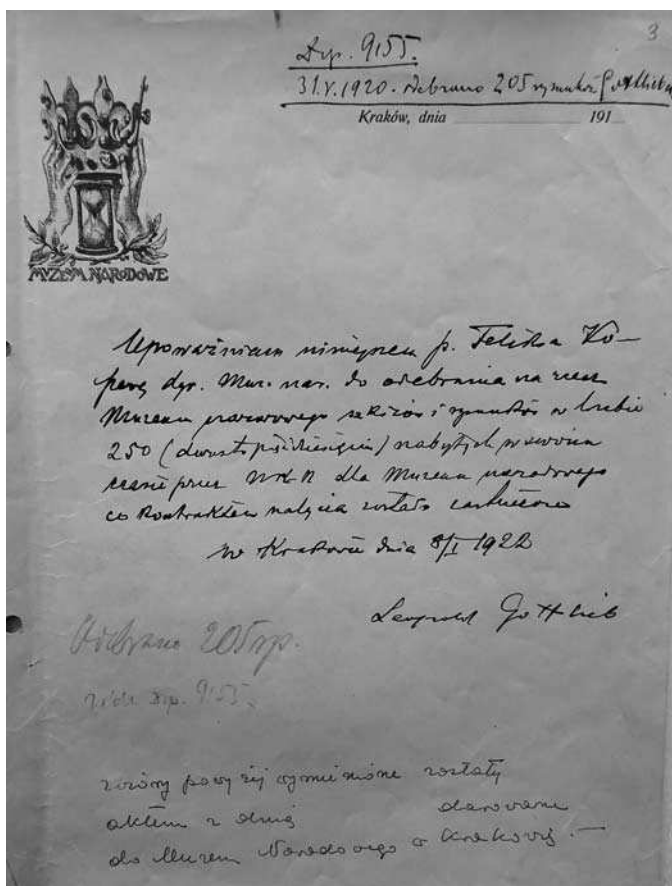 3
Dep. 9155.
31.V.1920. odebrano 205 rysunków Gottlieba
Kraków, dnia 191
MVZEVM NARODOWE
Upoważniam niniejszem p. Feliksa Ko-
perę dyr. Muz. nar. do odebrania na rzecz
Muzeum narodowego szkiców i rysunków w liczbie
250 (dwustupięćdziesięciu) nabytych w swoim
czasie przez NKN dla Muzeum narodowego
co kontraktem nabycia zostało
w Krakowie dnia 8/I 1922
Leopold Gottlieb
Odebrano 205 rys.
Dep. 9155.
zbiory powyżej wymienione zostały
aktem z dnia darowane
do Muzeum Narodowego w Krakowie.—